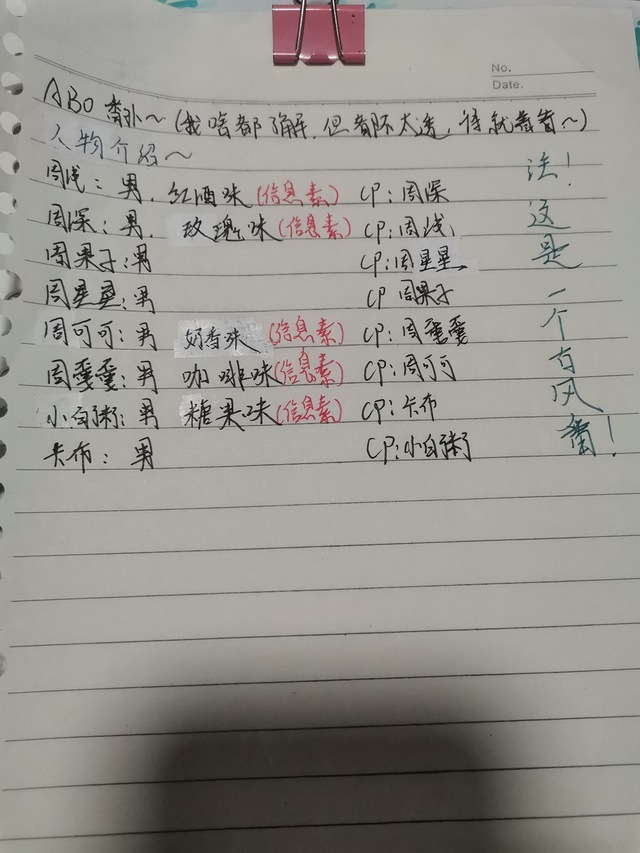 No.
Date.
ABO番外～(我啥都了解,但都不太透,将就着看～)
人物介绍～
周浅：男.红酒味(信息素) CP:周深
周深：男. 玫瑰味(信息素) CP:周浅
周果子:男 CP:周星星
周星星:男 CP 周果子
周可可:男 奶香味(信息素) CP:周蛋蛋
周蛋蛋:男 咖啡味(信息素) CP:周可可
小白粥:男 糖果味(信息素) CP:卡布
卡布：男 CP:小白粥
注！这是一个古风番！